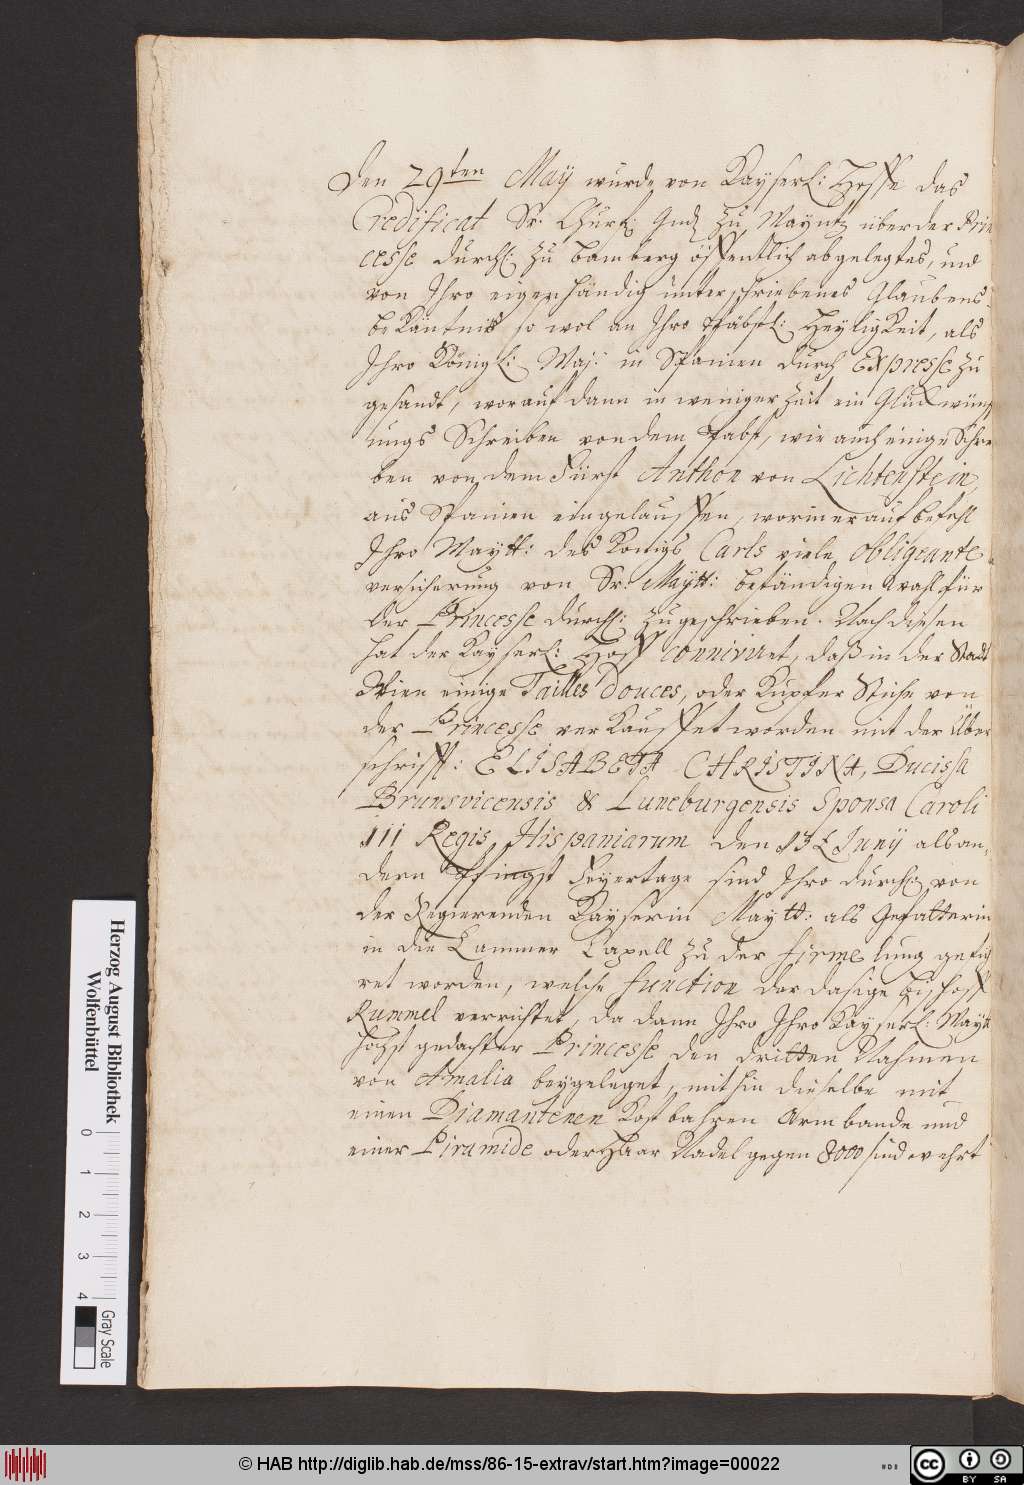 Den 29ten May wurde von Kayserl: Hoffe das
Credificat Sr. Chürf: Gnd zu Mayntz über der Prin
cesse durchl: zu bamberg öffentlich abgelegtes, und
von Ihro eigenhändig unterschriebenes Glaubens
bekäntnis so wol an Ihro Päbstl: Heyligkeit, als
Ihro Königl: Maj: in Spanien durch Expresse zu
gesandt, worauf dann in weniger Zeit ein Glückwünsch
ungs Schreiben von dem Pabst, wie auch einige Schrei
ben von dem Fürst Anthon von Lichtenstein,
aus Spanien eingelauffen, worin er auf befehl
Ihro Maytt: des Konigs Carls viele obligeante
versicherung von Sr. Maytt: beständigen wahl für
der Princesse durchl: zugeschrieben. Nach diesen
hat der Kayserl: Hoff connivi et, daß in der Stadt
Wien einige Tailles douces, oder Kupfer Stiche von
der Princesse verkauffet worden mit der Über
schrifft: ELISABETA CHRISTINA, Ducissa
Brunsvicensis & Luneburgensis Sponsa Caroli
III Regis Hispaniarum den Juny als an,
dern Pfingst Feyertage sind Ihro durchl: von
der Regierenden Kayserin Maytt: als Gefatterin
in die Cammer Capell zu der firmelung gefüh
ret worden, welche function der dasige bischoff
Rummel verrichtet, da dann Ihro Ihro Kayserl: Maytt
höchst gedachter Princesse den dritten Nahmen
von Amalia beygeleget, mithin dieselbe mit
einen Diamantenen kostbahren Armbande und
einer Piramide oder Haar Nadel gegen 8000 sind wehrt
Herzog August Bibliothek
Wolfenbüttel
0 1 2 3 4
Gray Scale
© HAB http://diglib.hab.de/mss/86-15-extrav/start.htm?image=00022
cc BY SA